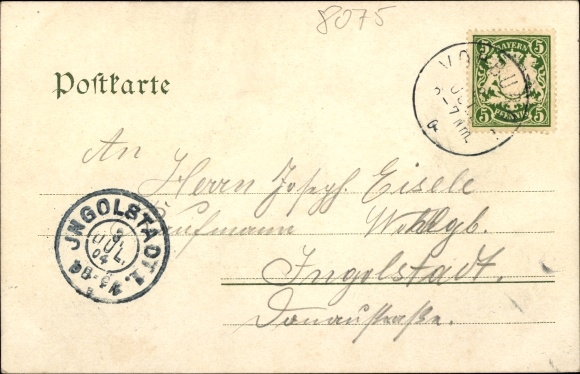 8075
Postkarte
BAYERN
5 5
PFENNIG
JUL
7 NM.
An
Herrn Joseph Eisele
Kaufmann Wohlgb.
Ingolstadt.
Donaustraße.
JNGOLSTADT 1.
JUL.
04